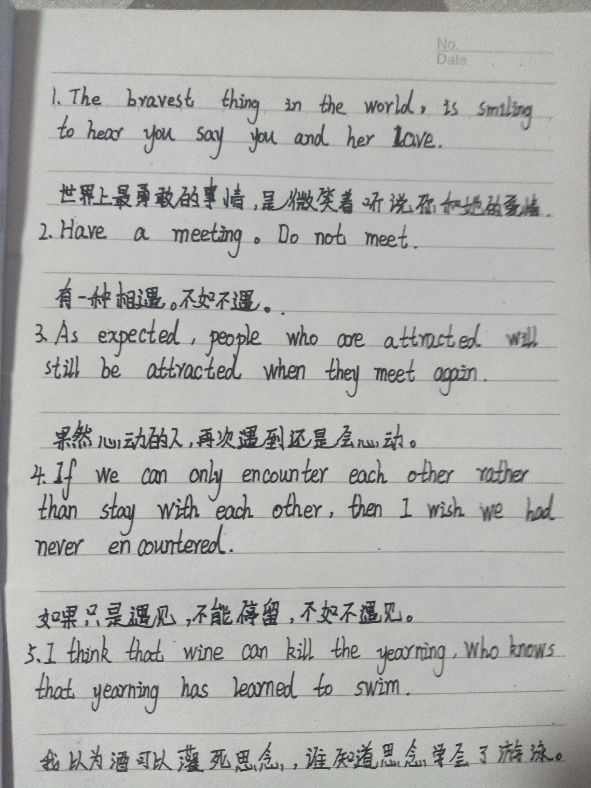 No.
Date
1. The bravest thing in the world, is smiling
to hear you say you and her love.
世界上最勇敢的事情,是微笑着听说你和她的爱情.
2. Have a meeting。Do not meet.
有一种相遇。不如不遇。
3. As expected, people who are attracted will
still be attracted when they meet again.
果然心动的人,再次遇到还是会心动。
4. If we can only encounter each other rather
than stay with each other, then I wish we had
never encountered.
如果只是遇见,不能停留,不如不遇见。
5. I think that wine can kill the yearning. Who knows
that yearning has learned to swim.
我以为酒可以灌死思念,谁知道思念学会了游泳。